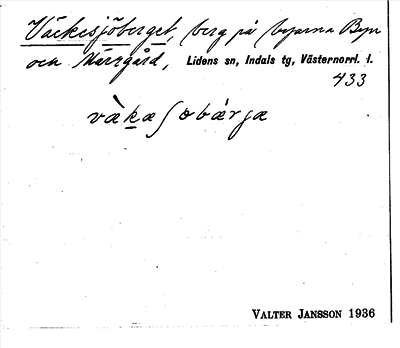 Väckesjöberget, berg på byarna Byn
och Norrgård, Lidens sn, Indals tg, Västernorrl. l.
433
vàkæ ʃobárjæ
VALTER JANSSON 1936